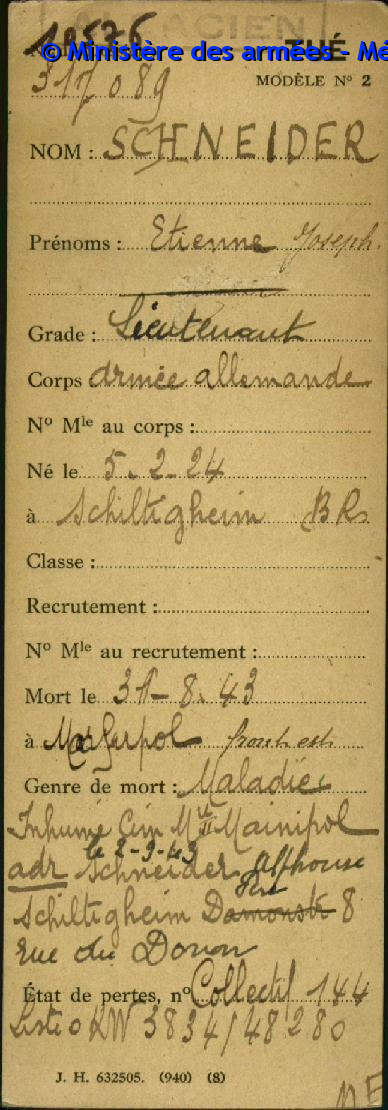 ALSACIEN
18576
© Ministère des armées - Mé
TUÉ
317089
MODÈLE N° 2
NOM : SCHNEIDER
Prénoms : Etienne Joseph.
Grade : Lieutenant
Corps armée allemande
N° Mle au corps :
Né le 5-2-24
à Schiltigheim BR
Classe :
Recrutement :
N° Mle au recrutement :
Mort le 31-8.43
à front est
Genre de mort : Maladie
Inhumé Cim Mre Mainipol
le 2-9-43
adr Schneider Alphonse
Schiltigheim 8
Rue du Donon
État de pertes, n° Collectif 144
Liste OKW 3834/48280
J. H. 632505. (940) (8)